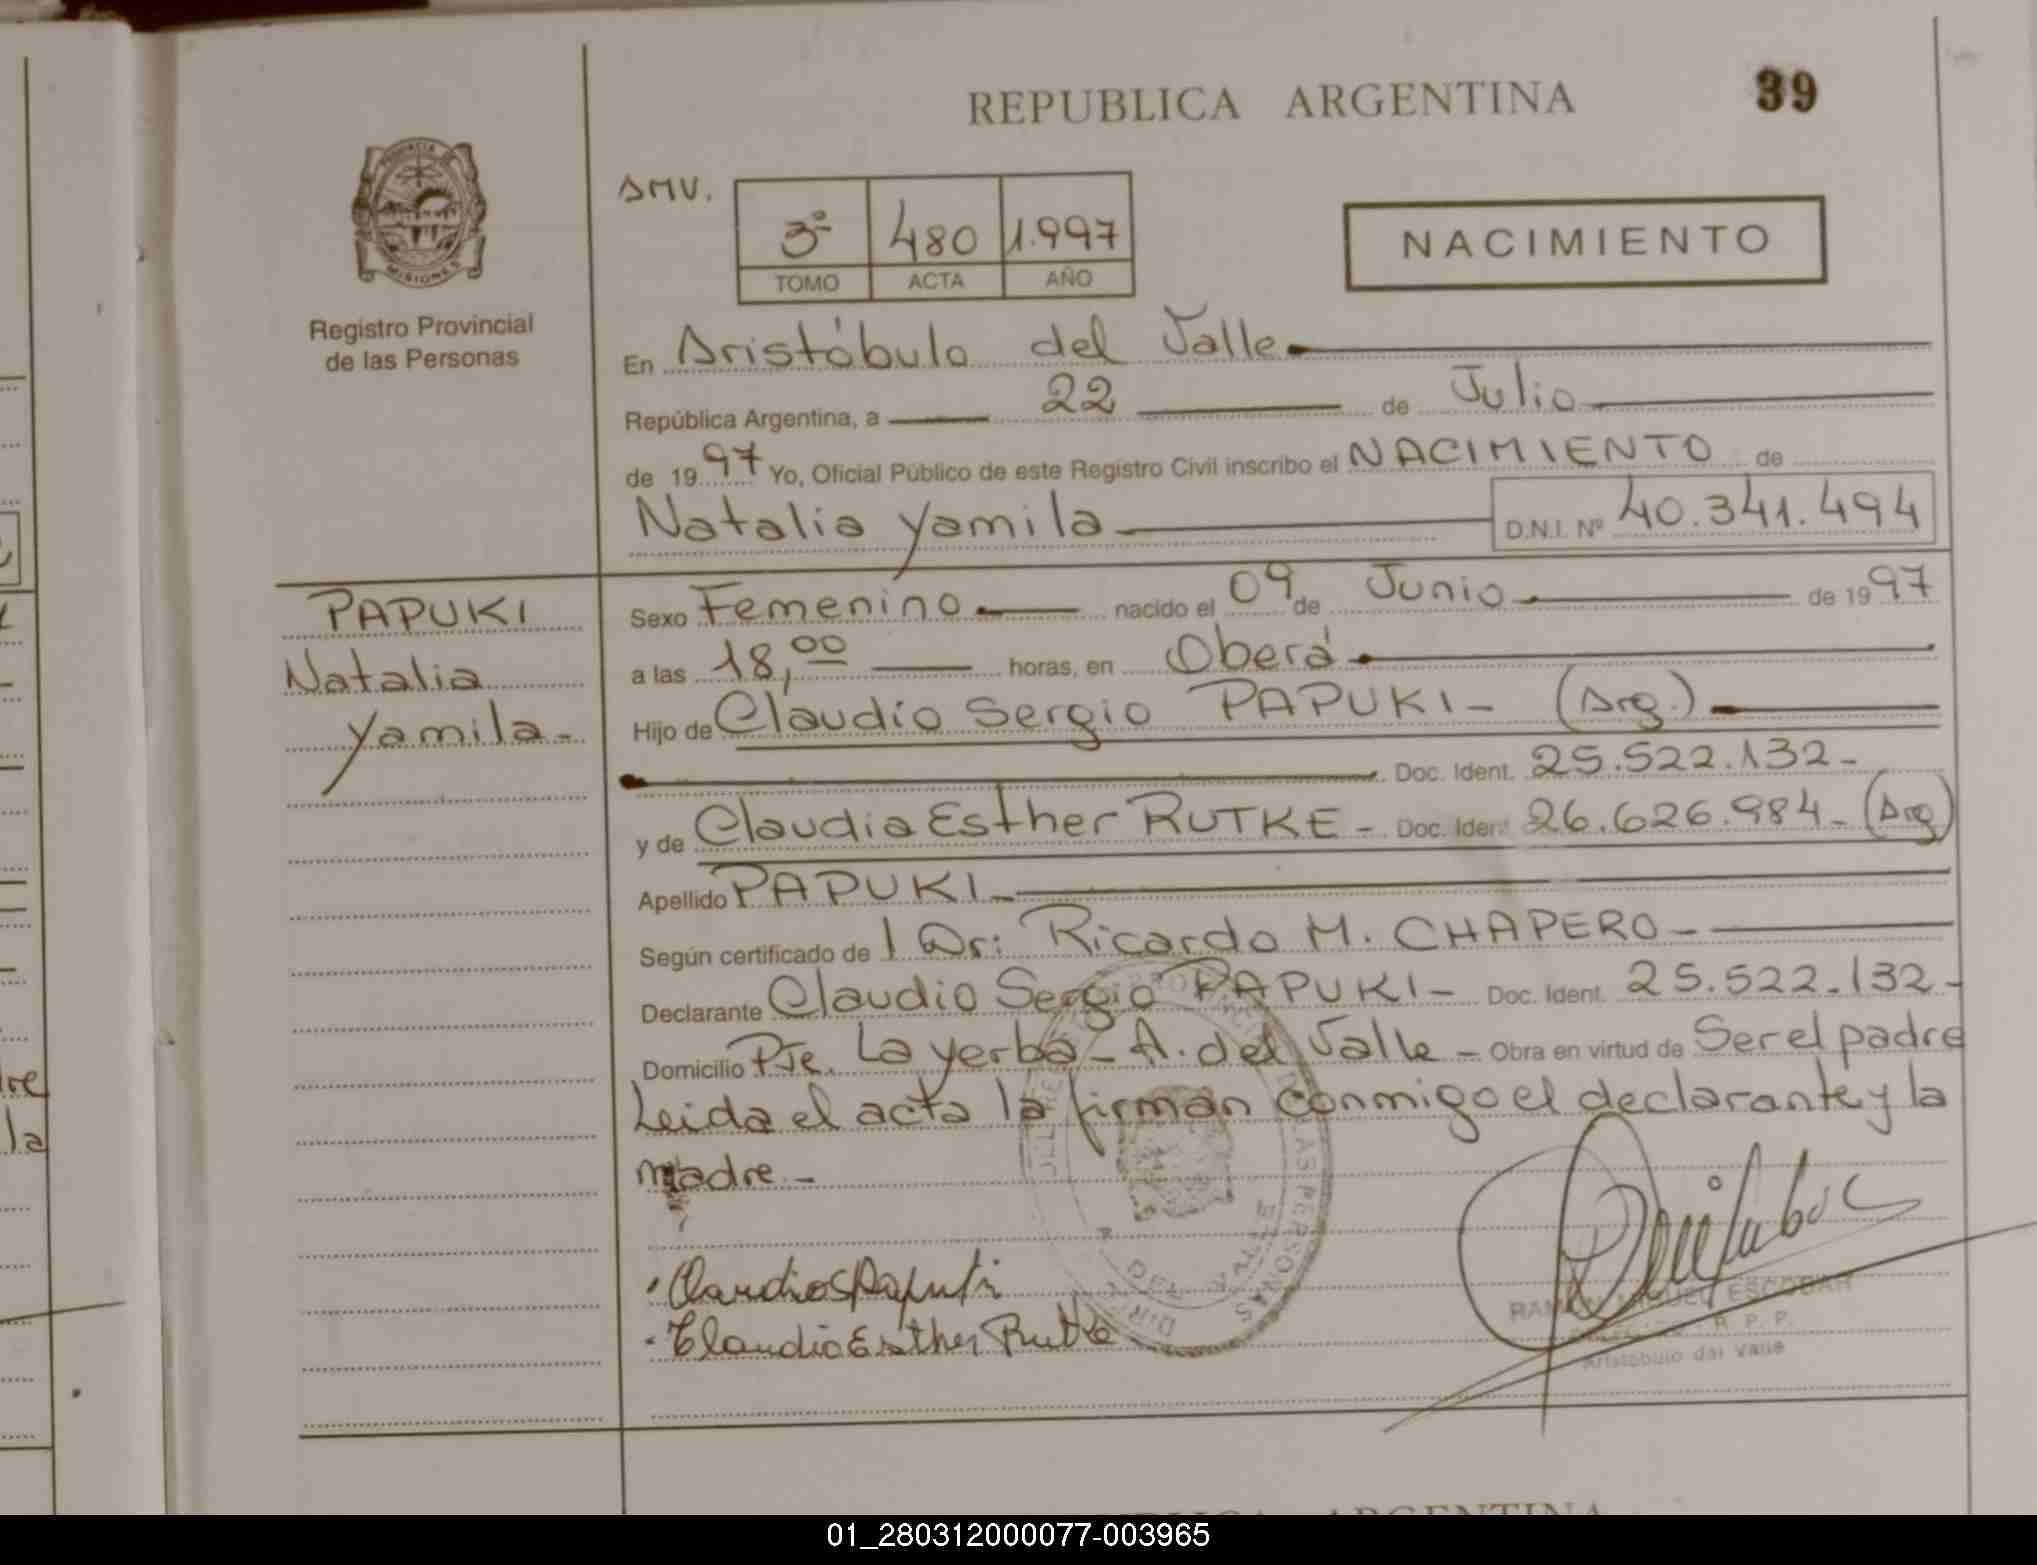 REPUBLICA ARGENTINA
39
PROVINCIA DE
MISIONES
Registro Provincial
de las Personas
AMV.
3º 480 1.997
TOMO ACTA AÑO
NACIMIENTO
En Aristóbulo del Valle
República Argentina, a 22 de Julio
de 1997 Yo, Oficial Público de este Registro Civil inscribo el NACIMIENTO de
Natalia Yamila D.N.I. Nº 40.341.494
PAPUKI
Natalia
Yamila-
Sexo Femenino nacido el 09 de Junio de 1997
a las 18,00 horas, en Oberá
Hijo de Claudio Sergio PAPUKI- (Arg.)
Doc. Ident. 25.522.132-
y de Claudia Esther RUTKE- Doc. Ident. 26.626.984- (Arg)
Apellido PAPUKI-
Según certificado de l Dr: Ricardo M. CHAPERO-
Declarante Claudio Sergio PAPUKI- Doc. Ident. 25.522.132-
Domicilio Pje. La yerba- A. del Valle- Obra en virtud de Ser el padre
Leida el acta la firman conmigo el declarante y la
madre.-
Claudio S Papuki
Claudia Esther Rutke
RAMON MIGUEL ESCOBAR
R. P. P.
Aristóbulo del Valle
DE LAS PERSONAS
DEL VALLE
DIR.
dre
la
REPUBLICA ARGENTINA
01_280312000077-003965